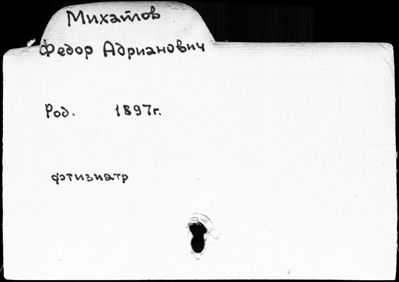 Михайлов
Федор Адрианович
Род. 1897г.
фтизиатр